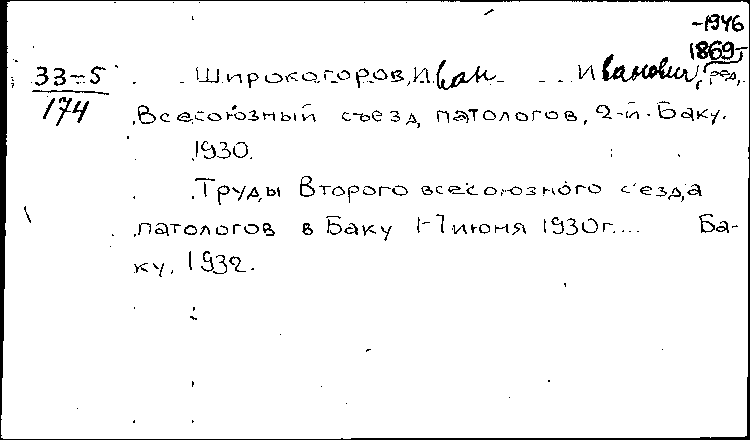 -1946
1869-
33-5 Широкогоров, Иван Иванович, ред.
174
Всесоюзный съезд патологов, 2-й. Баку.
1930.
Труды Второго всесоюзного с'езда
патологов в Баку 1-7 июня 1930г.... Ба-
ку, 1932.